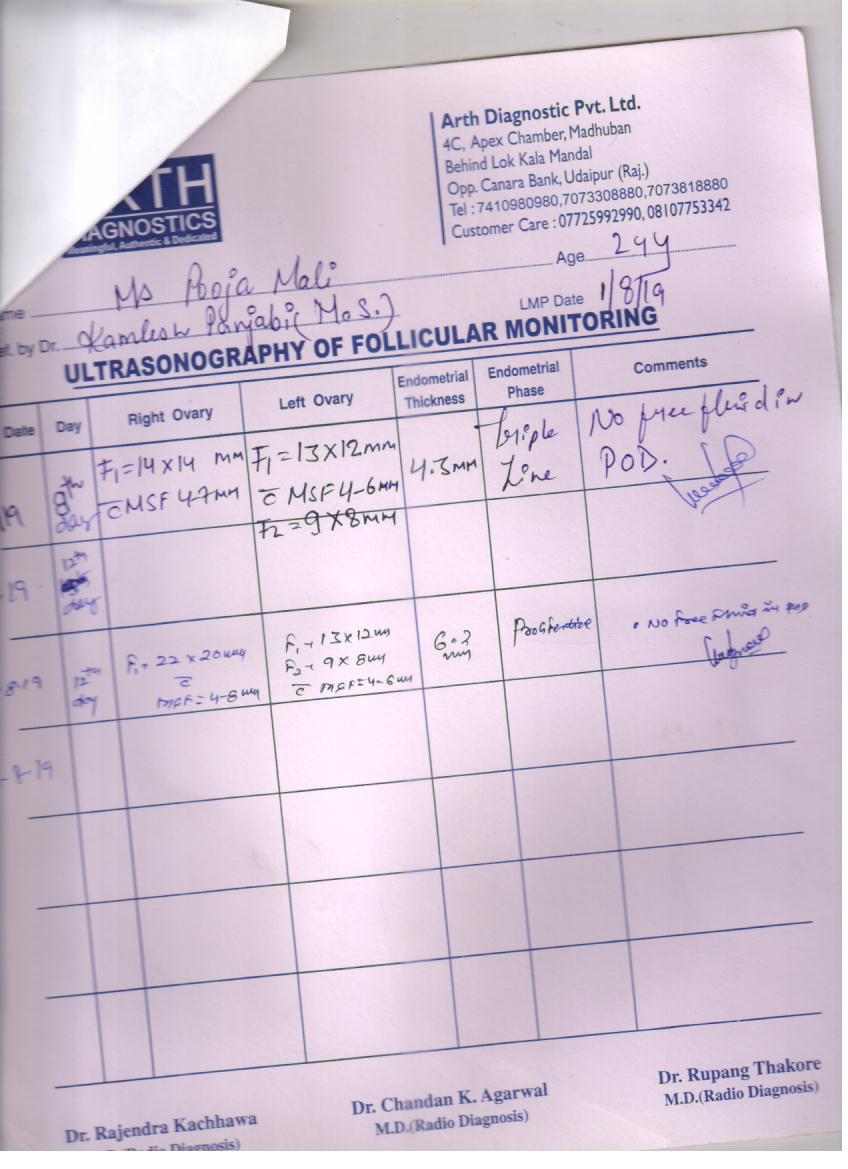 Arth Diagnostic Pvt. Ltd.
4C, Apex Chamber, Madhuban
Behind Lok Kala Mandal
Opp. Canara Bank, Udaipur (Raj.)
Tel : 7410980980,7073308880,7073818880
Customer Care : 07725992990, 08107753342
RTH
AGNOSTICS
Meaningful, Authentic & Dedicated
me Ms Pooja Mali Age 24 y
ef. by Dr. Kamlesh Panjabi (M.S.) LMP Date 1/8/19
ULTRASONOGRAPHY OF FOLLICULAR MONITORING
Date Day Right Ovary Left Ovary Endometrial Thickness Endometrial Phase Comments
19 9th day F1 = 14 X 14 mm c̄ MSF 4-7 mm F1 = 13 X 12 mm c̄ MSF 4-6 mm F2 = 9 X 8 mm 4.3 mm Triple Line No free fluid in POD.
-19 12th day
8-19 12th day F1 - 22 x 20 mm c̄ MSF = 4-8 mm F1 - 13 x 12 mm F2 - 9 x 8 mm c̄ MSF = 4-6 mm 6.3 mm Proliferative • No free fluid in POD
-8-19
Dr. Rajendra Kachhawa
(Radio Diagnosis)
Dr. Chandan K. Agarwal
M.D.(Radio Diagnosis)
Dr. Rupang Thakore
M.D.(Radio Diagnosis)